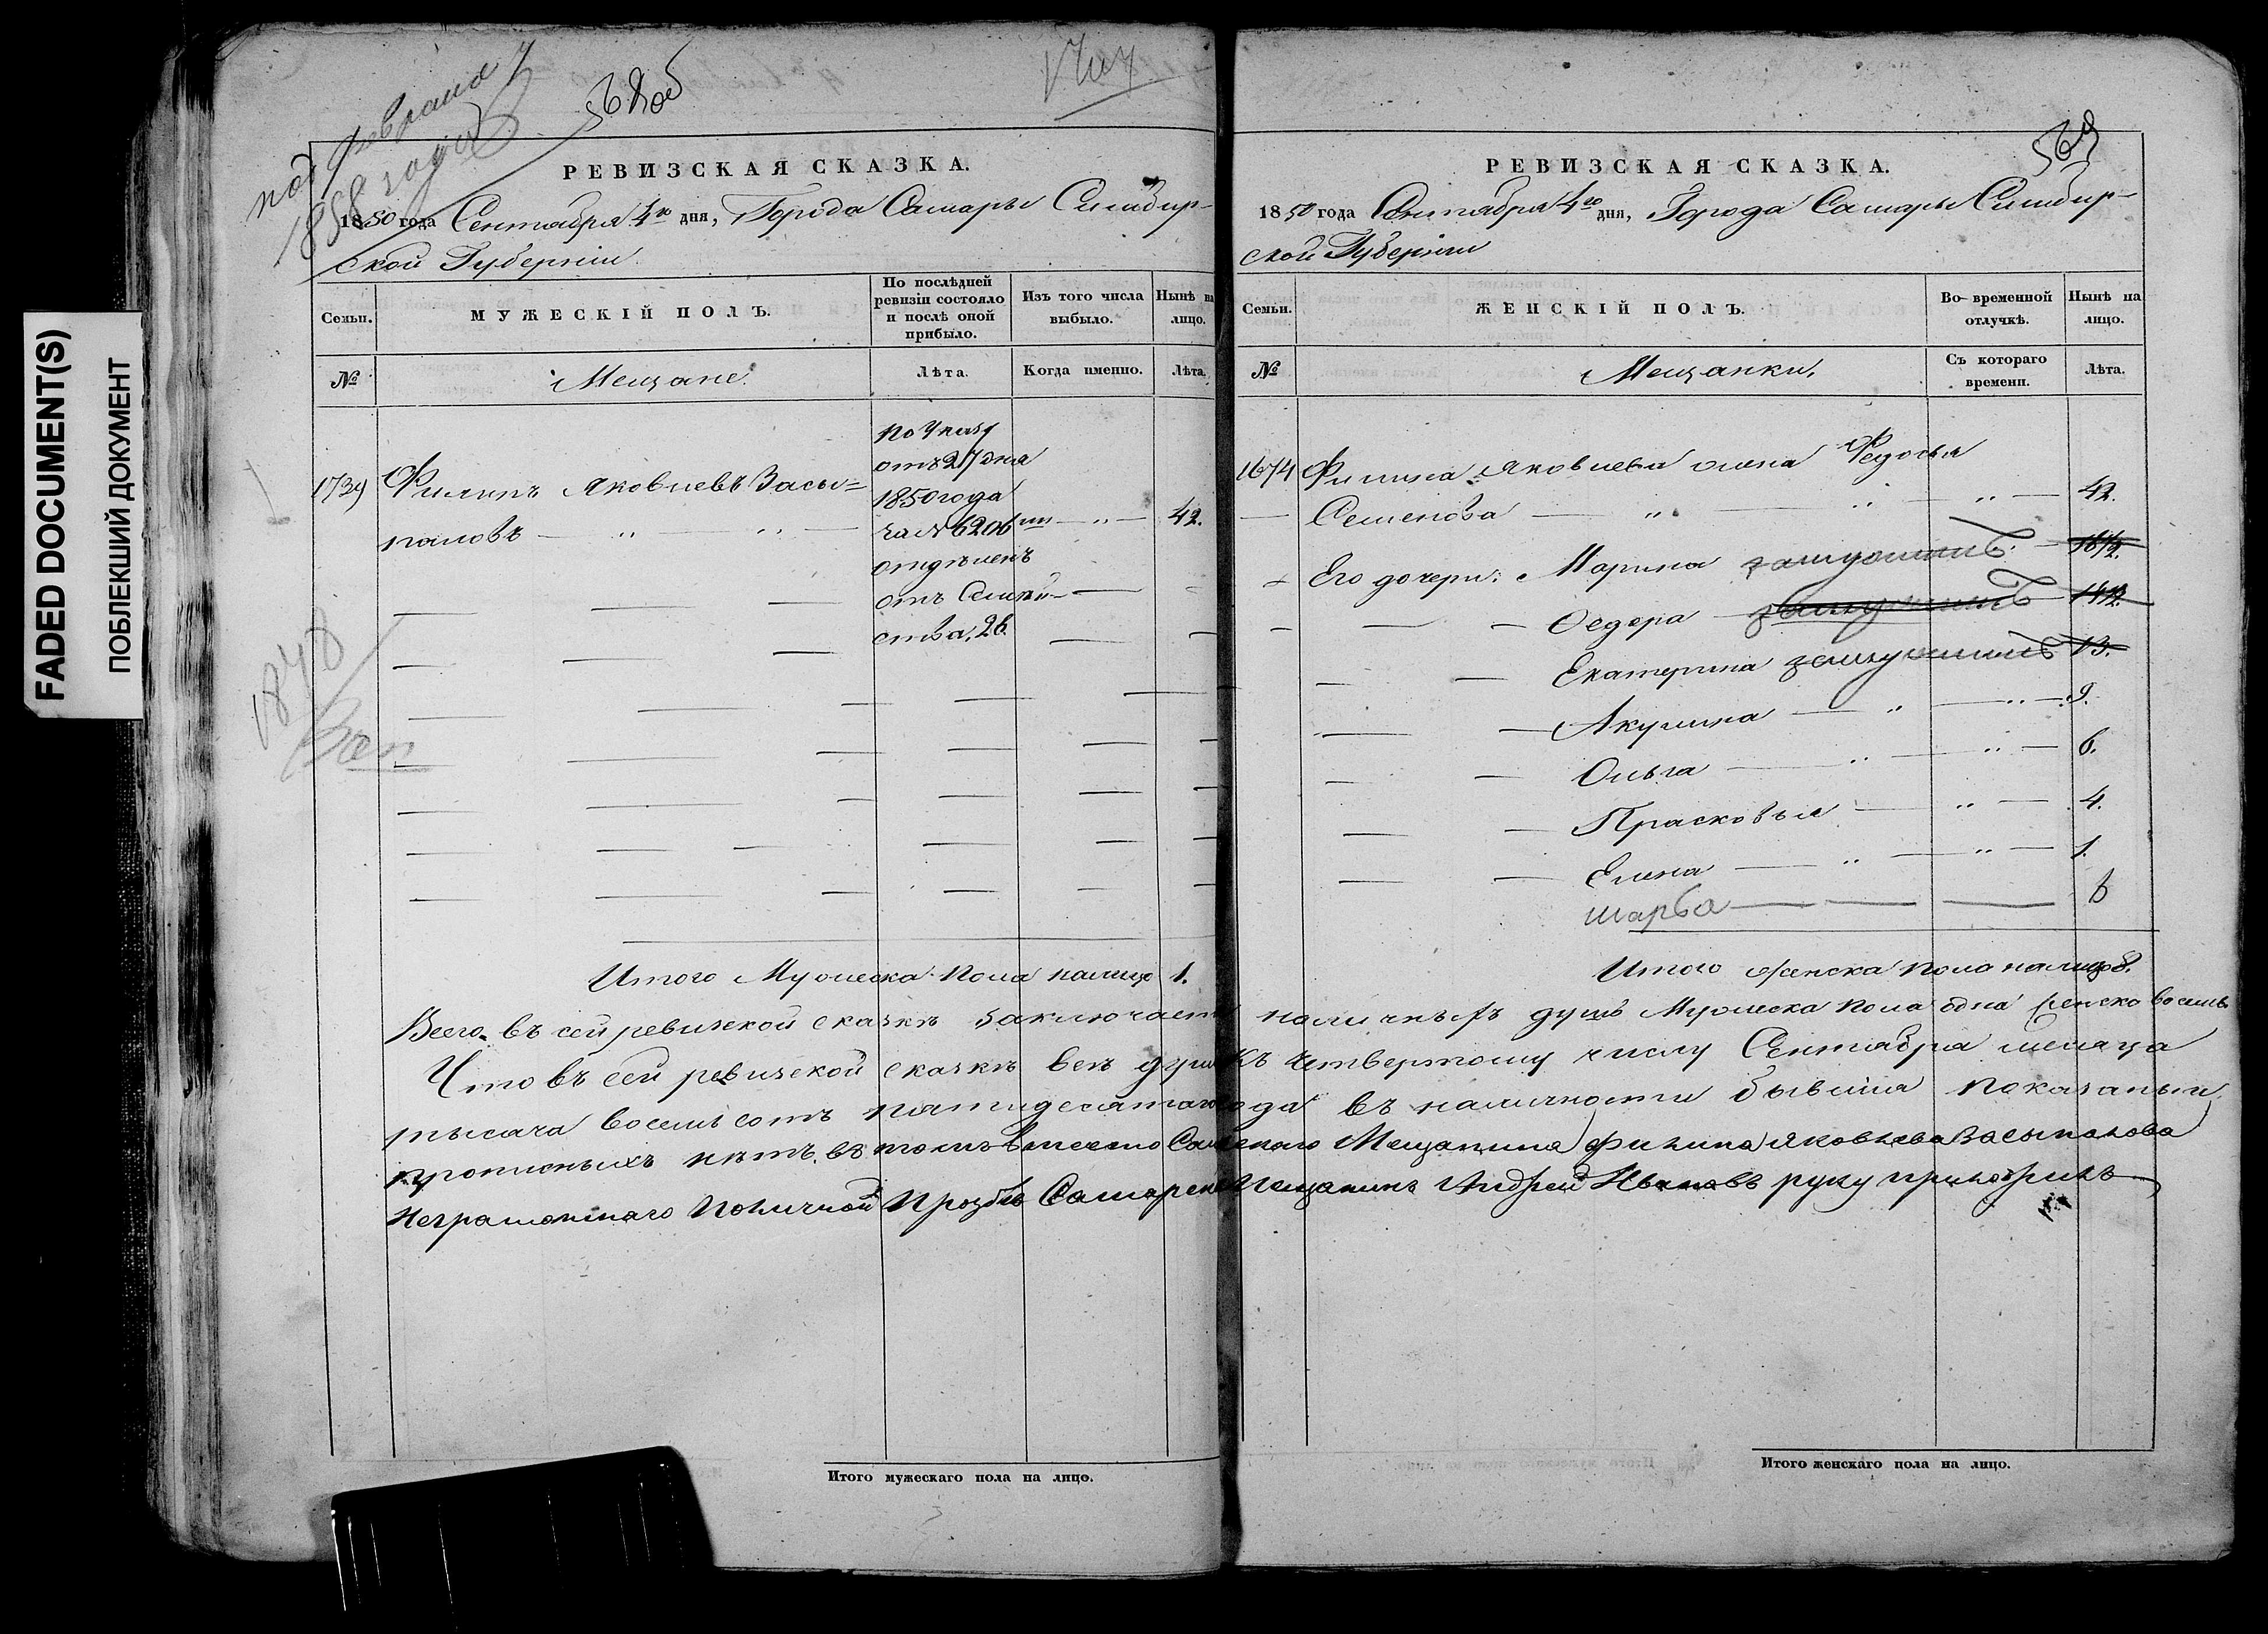 FADED DOCUMENT(S)
ПОБЛЕКШИЙ ДОКУМЕНТ
под февраля 7
1858 года
568 об
РЕВИЗСКАЯ СКАЗКА.
1850 года Сентября 4го дня, Города Самары Симбир-
ской Губернiи
Семьи.
МУЖЕСКIЙ ПОЛЪ.
По послѣдней ревизiи состояло и послѣ оной прибыло.
Изъ того числа выбыло.
Нынѣ на лицо.
№
Мещане.
Лѣта.
Когда именно.
Лѣта.
По Указу
отъ 27 дня
1739 Филипъ Яковлевъ Засы=
1850 года
паловъ — „ — „ — за № 6206мъ — „ — 42.
отдѣленъ
отъ Семей-
ства, 26.
1848
Итого Мужеска Пола налицо 1.
569
РЕВИЗСКАЯ СКАЗКА.
1850 года Сентября 4го дня, Города Самары Симбир-
ской Губернiи
Семьи.
ЖЕНСКIЙ ПОЛЪ.
Во временной отлучкѣ.
Нынѣ на лицо.
№
Мещанки.
Съ котораго времени.
Лѣта.
1674 Филипа Яковлева жена Федосья
Семенова — „ — „ — „ — 42.
Его дочери: Марина замужемъ — 18½.
Ѳедора — замужемъ — 14½.
Екатерина замужемъ 13.
Акулина — „ — „ — 9.
Ольга — „ — „ — 6.
Прасковья — „ — 4.
Елена — „ — „ — 1.
Итого женска пола налицо 8.
Всего въ сей ревизской сказкѣ заключает наличныхъ душъ Мужеска Пола одна женска восемь
Что въ сей ревизской сказкѣ всѣ души къ четвертому числу Сентября месяца
тысяча восемь сотъ пятидесятаго года въ наличности бывшiя показаны и
прописныхъ нѣтъ. въ томъ вместо Самарскаго Мещанина Филипа Яковлева Засыпалова
Неграмотнаго Поличной Прозбѣ Самарскiй Мещанинъ Андрей Ивановъ руку приложилъ
Итого мужескаго пола на лицо.
Итого женскаго пола на лицо.